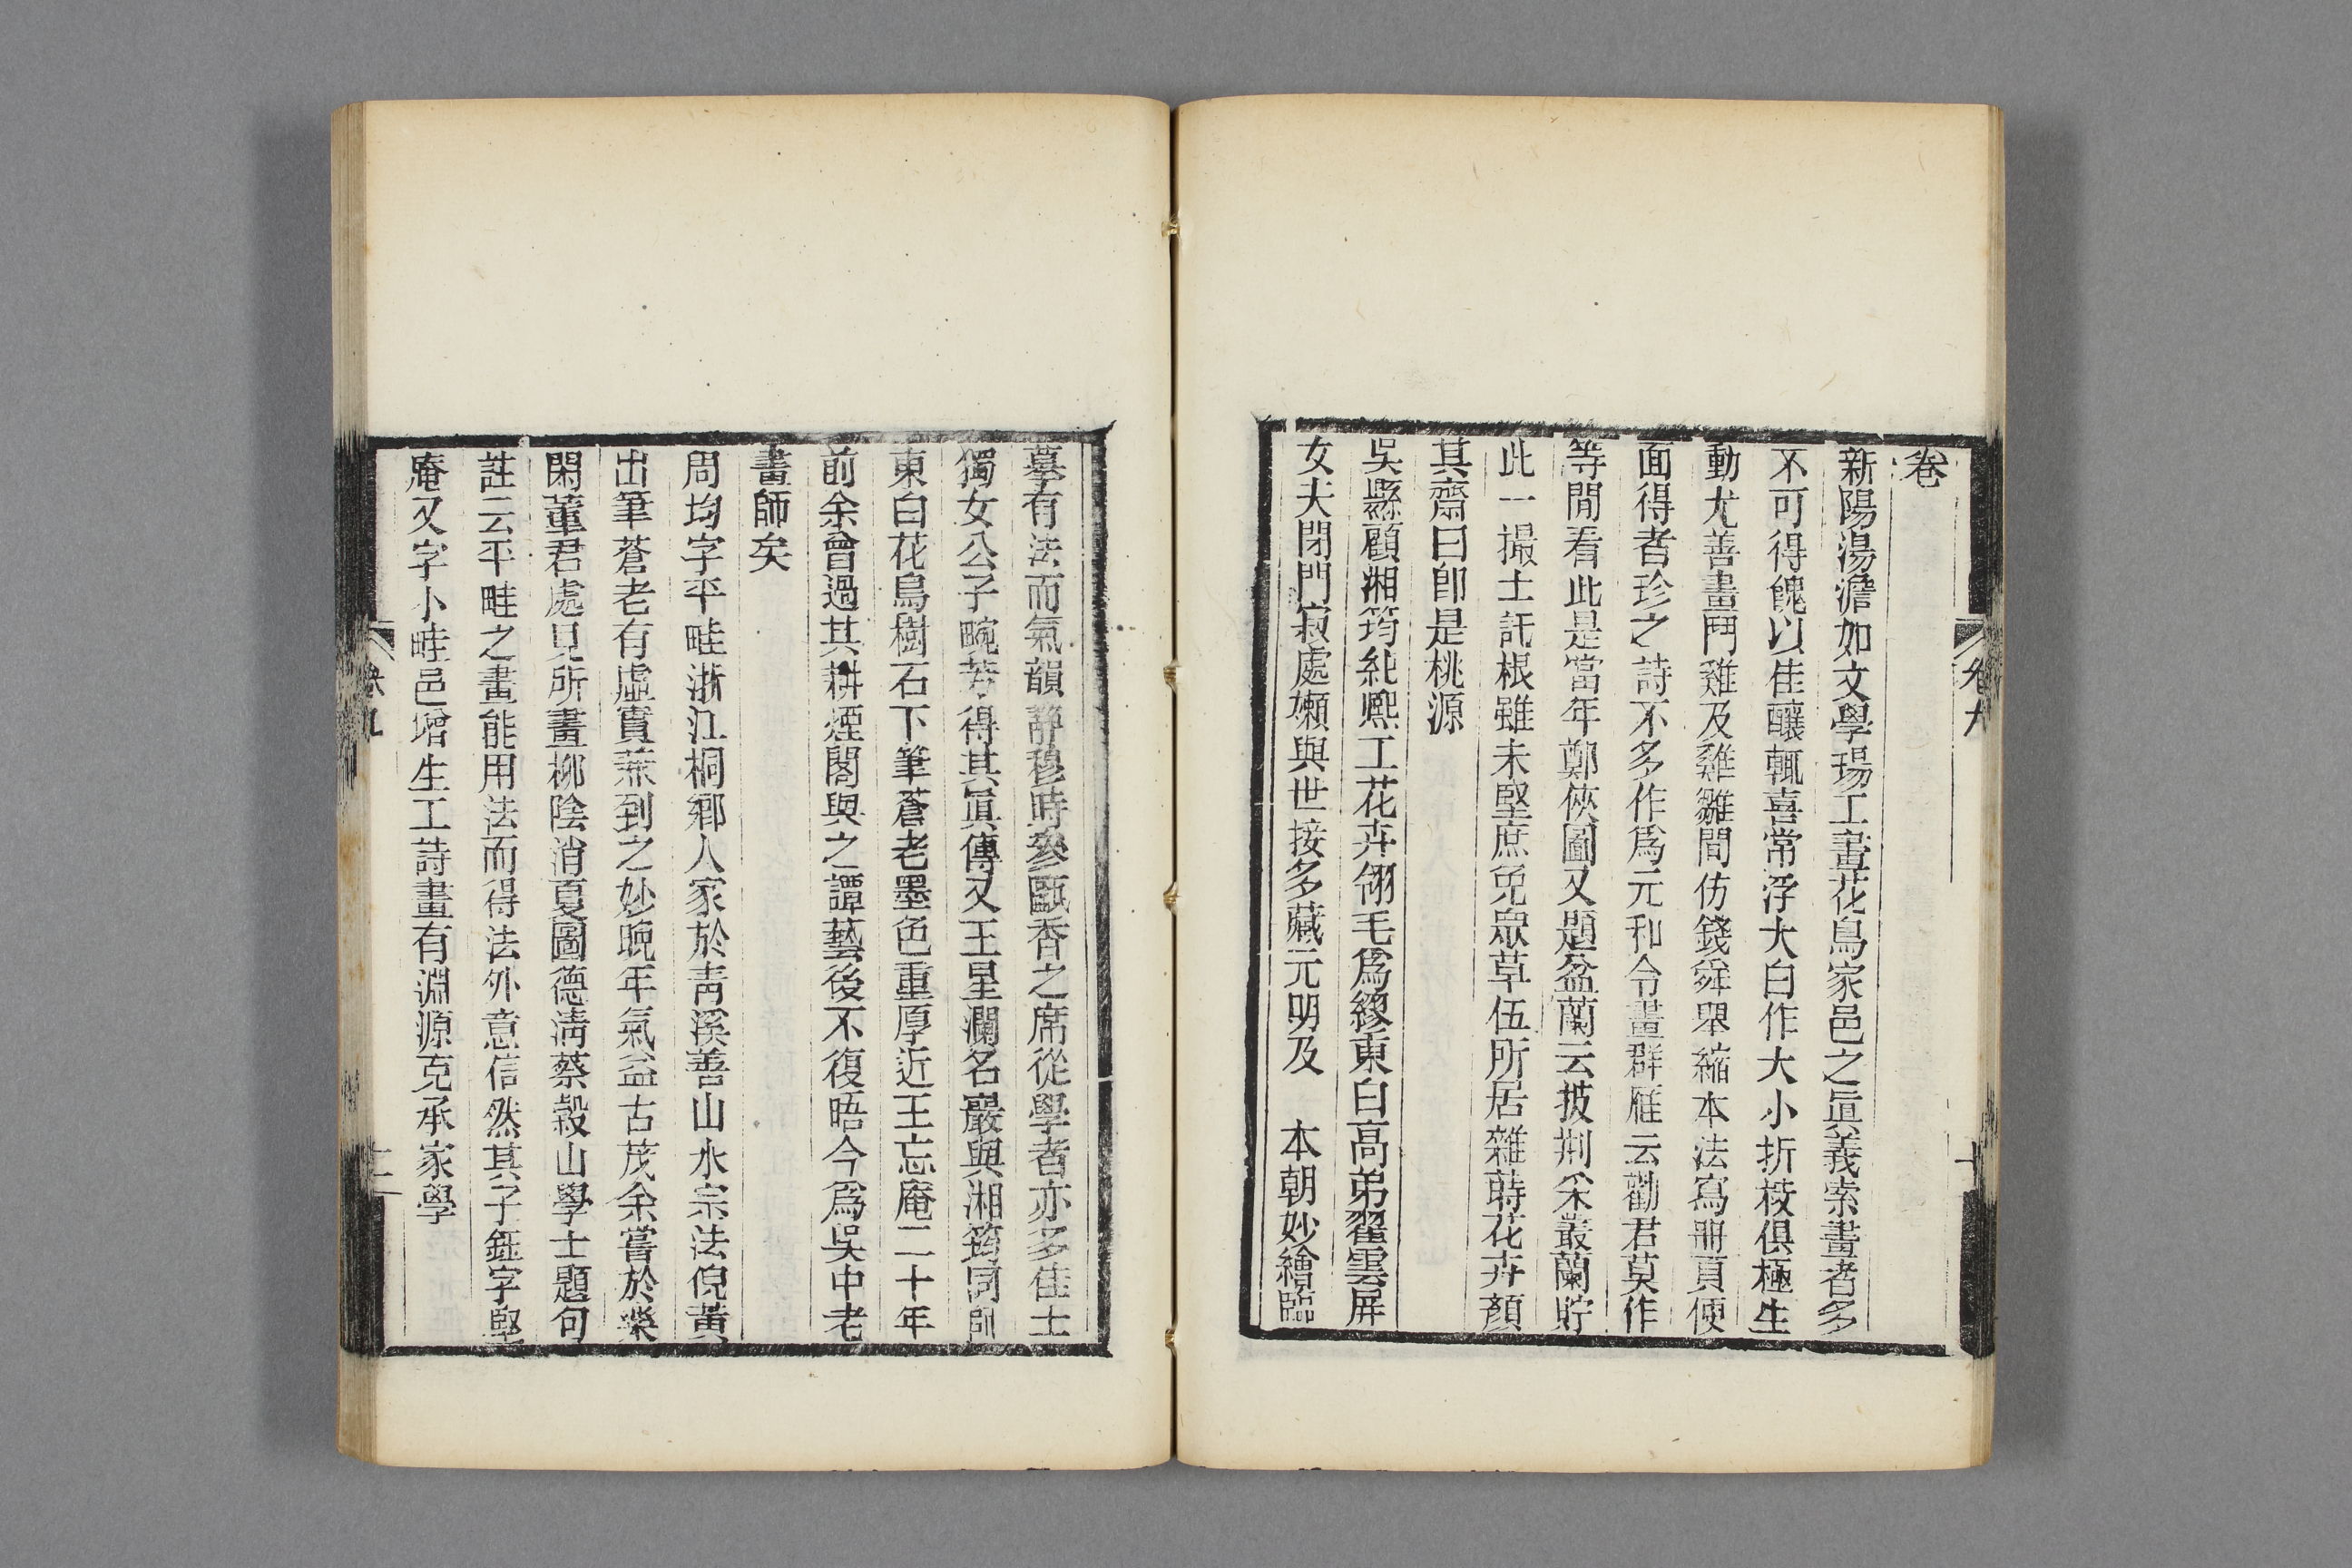 卷
新陽湯澹如文學瑒工畫花鳥家邑之眞義索畫者多
不可得餽以佳釀輒喜常浮大白作大小折枝俱極生
動尤善畫鬥雞及雞雛間仿錢舜舉縮本法寫冊頁便
面得者珍之詩不多作爲元和令畫群雁云勸君莫作
等閒看此是當年鄭俠圖又題盆蘭云披荆采叢蘭貯
此一撮土託根雖未堅庶免眾草伍所居雜蒔花卉顏
其齋曰卽是桃源
吳縣顧湘筠純熈工花卉翎毛爲繆東白高弟翟雲屏
女夫閉門寂處嬾與世接多藏元明及　本朝妙繪臨
摹有法而氣韻靜穆時參甌香之席從學者亦多佳士
獨女公子畹芳得其眞傳又王星瀾名巖與湘筠同師
東白花鳥樹石下筆蒼老墨色重厚近王忘庵二十年
前余曾過其耕煙閣與之譚藝後不復晤今爲吳中老
畫師矣
周均字平畦浙江桐鄉人家於青溪善山水宗法倪黃
出筆蒼老有虛實兼到之妙晚年氣益古茂余嘗於樂
閑董君處見所畫柳陰消夏圖德清蔡榖山學士題句
註云平畦之畫能用法而得法外意信然其子鈺字堅
庵又字小畦邑增生工詩畫有淵源克承家學
卷九
十
卷九
十一